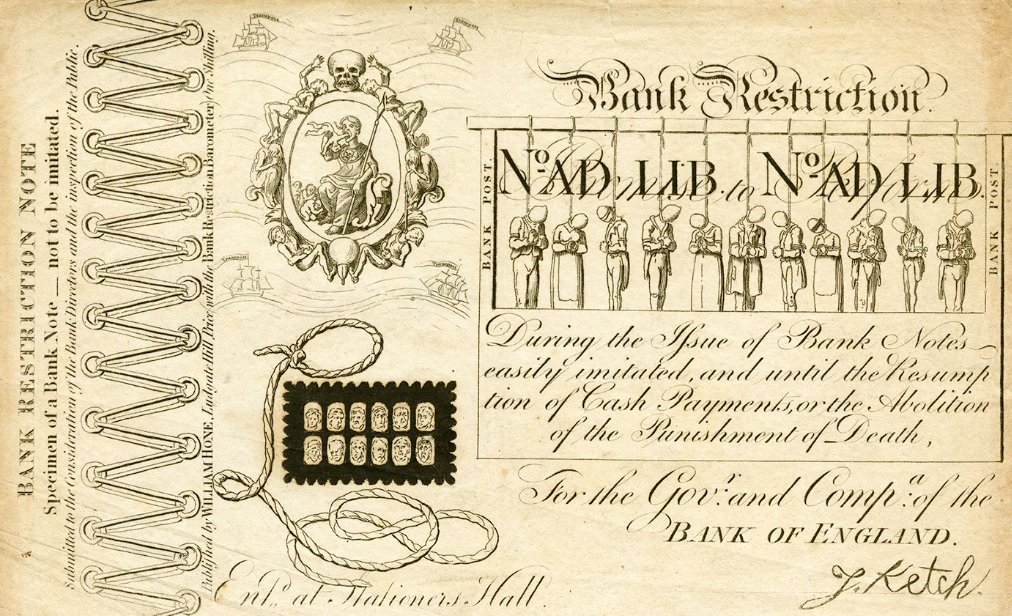 BANK RESTRICTION NOTE
Specimen of a Bank Note — not to be imitated.
Submitted to the Consideration of the Bank Directors and the inspection of the Public.
Published by WILLIAM HONE, Ludgate Hill, Price with the Bank Restriction Barometer One Shilling.
Transport
Transport
Transport
Transport
Bank Restriction.
BANK POST.
No. AD LIB. No. AD LIB.
Promise to Perform
BANK POST.
During the Iſsue of Bank Notes
easily imitated, and until the Resump
tion of Cash Payments, or the Abolition
of the Punishment of Death,
For the Govr. and Compa. of the
BANK OF ENGLAND.
J. Ketch.
Entd. at Stationers Hall.